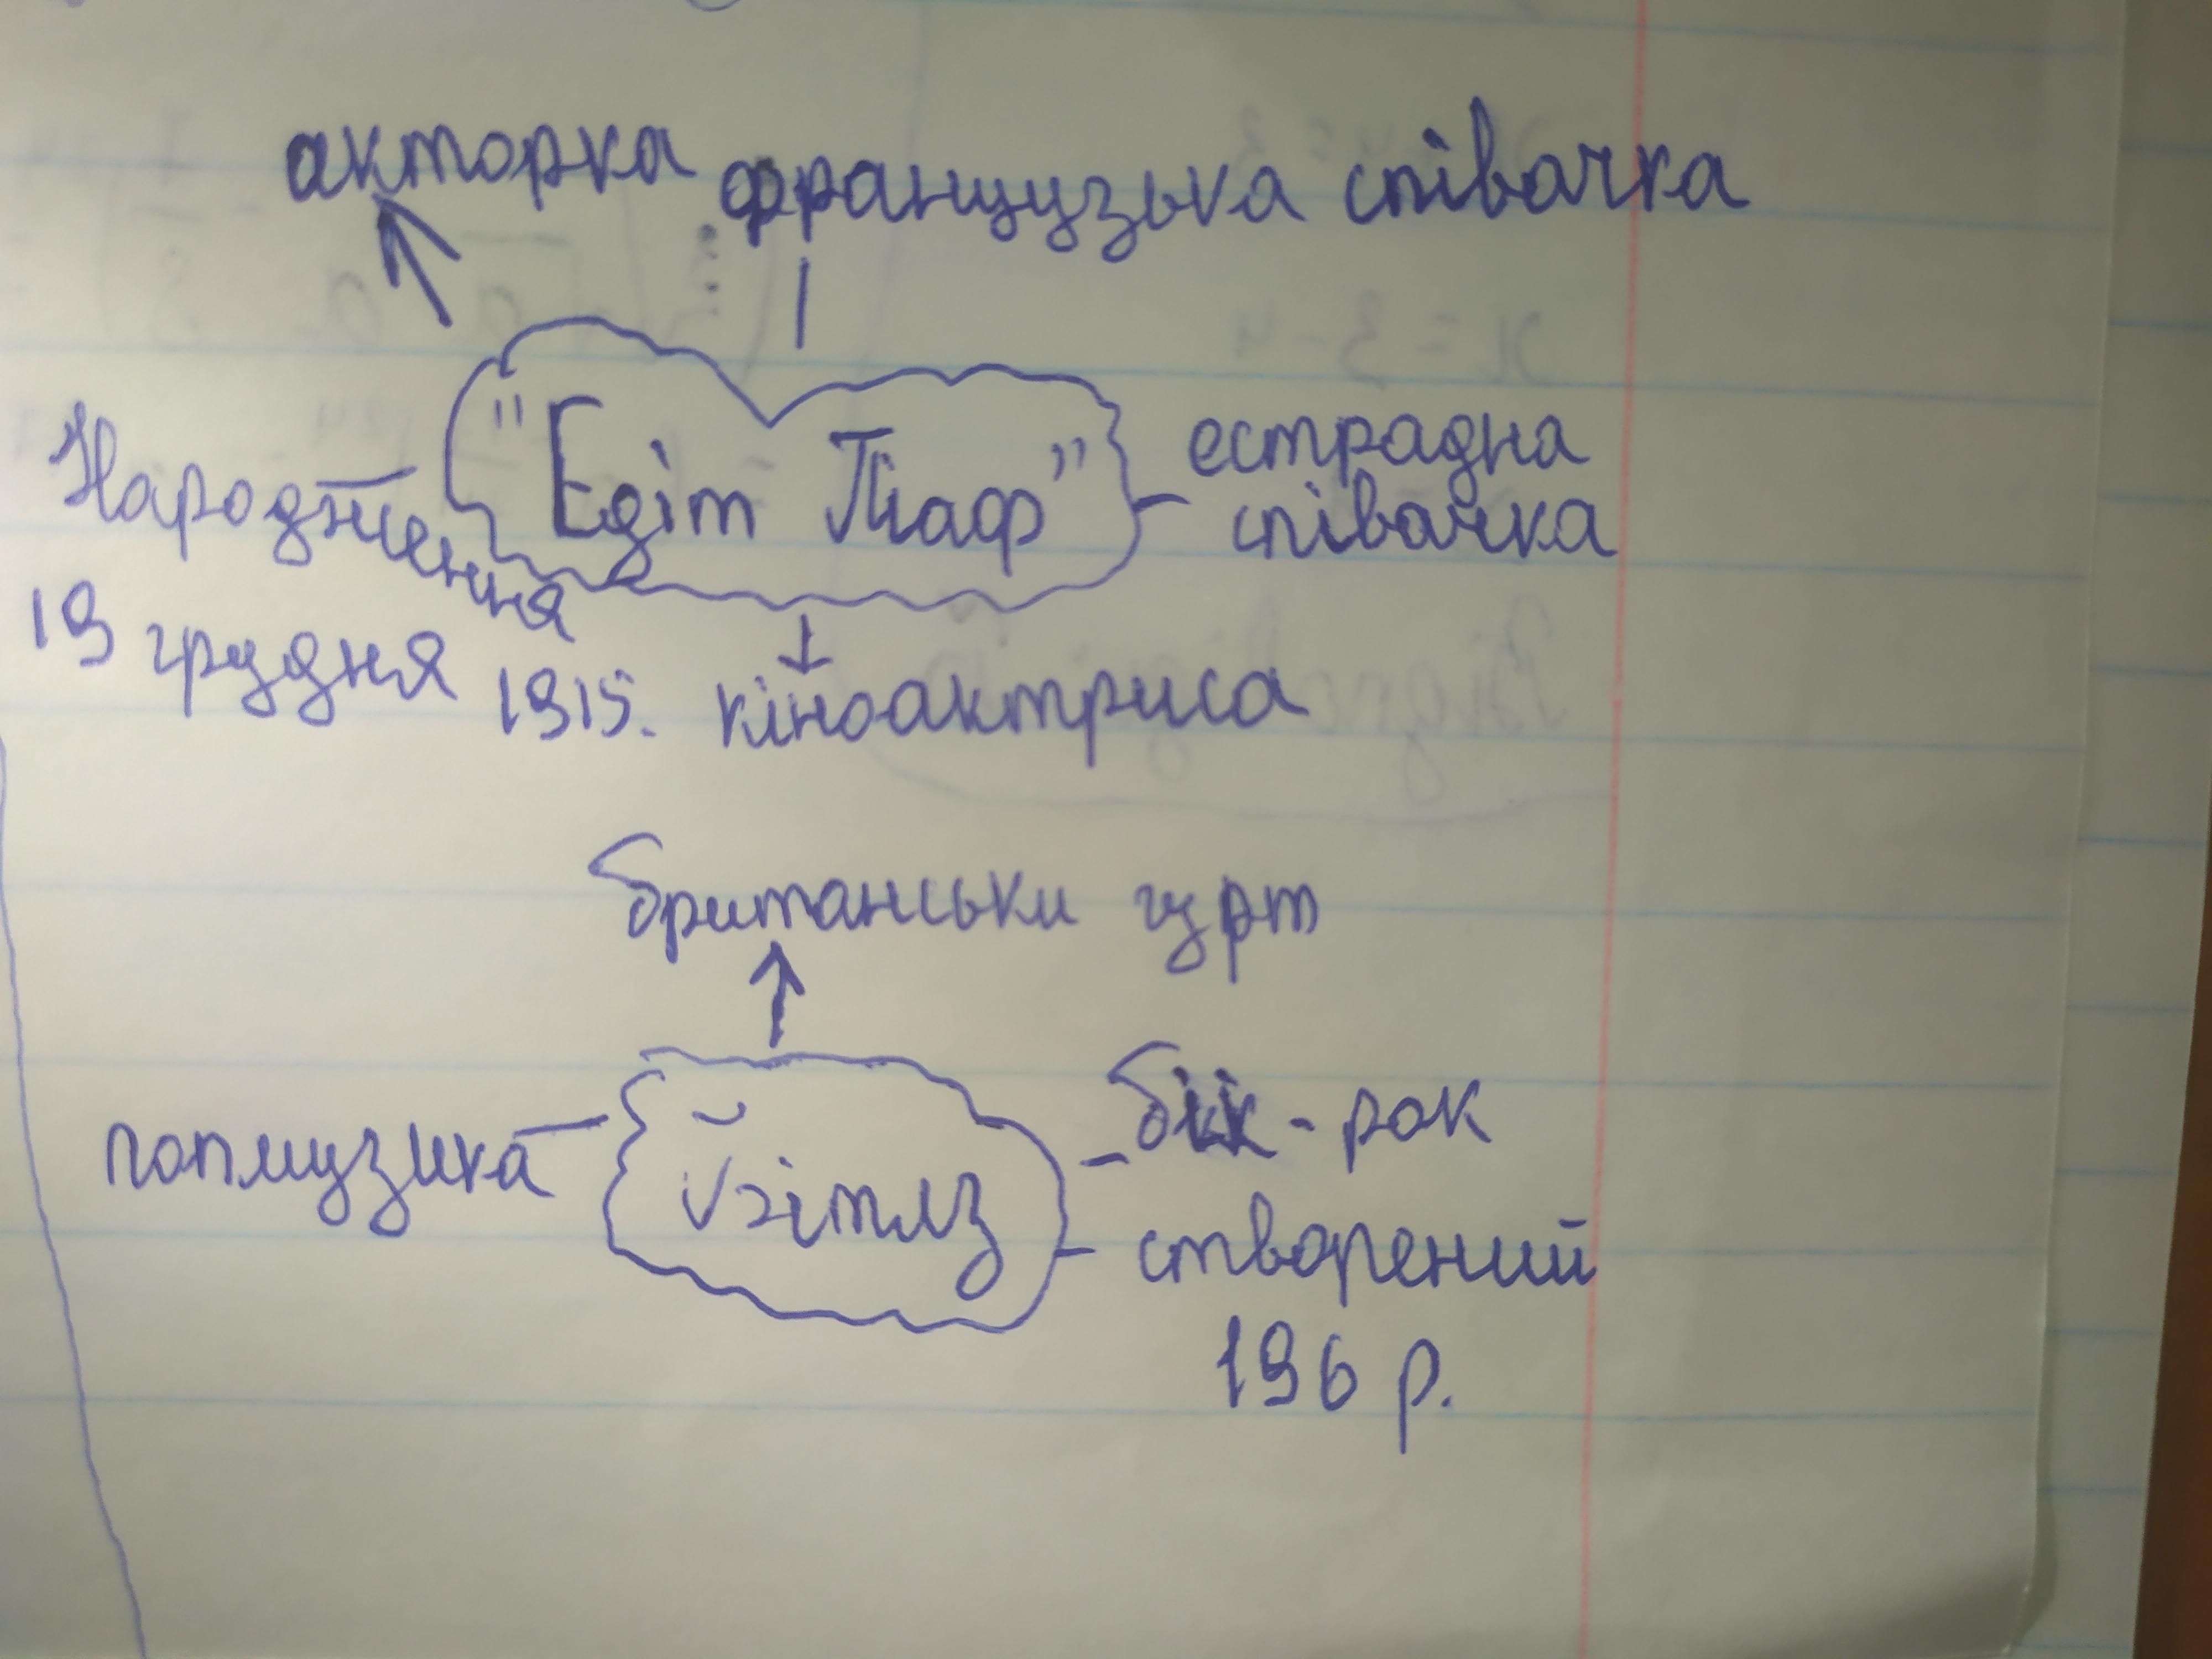 акторка французька співачка
"Едіт Піаф"
естрадна
співачка
Народження
19 грудня 1915.
кіноактриса
британськи гурт
попмузика
Бітлз
- рок
створений
196 р.